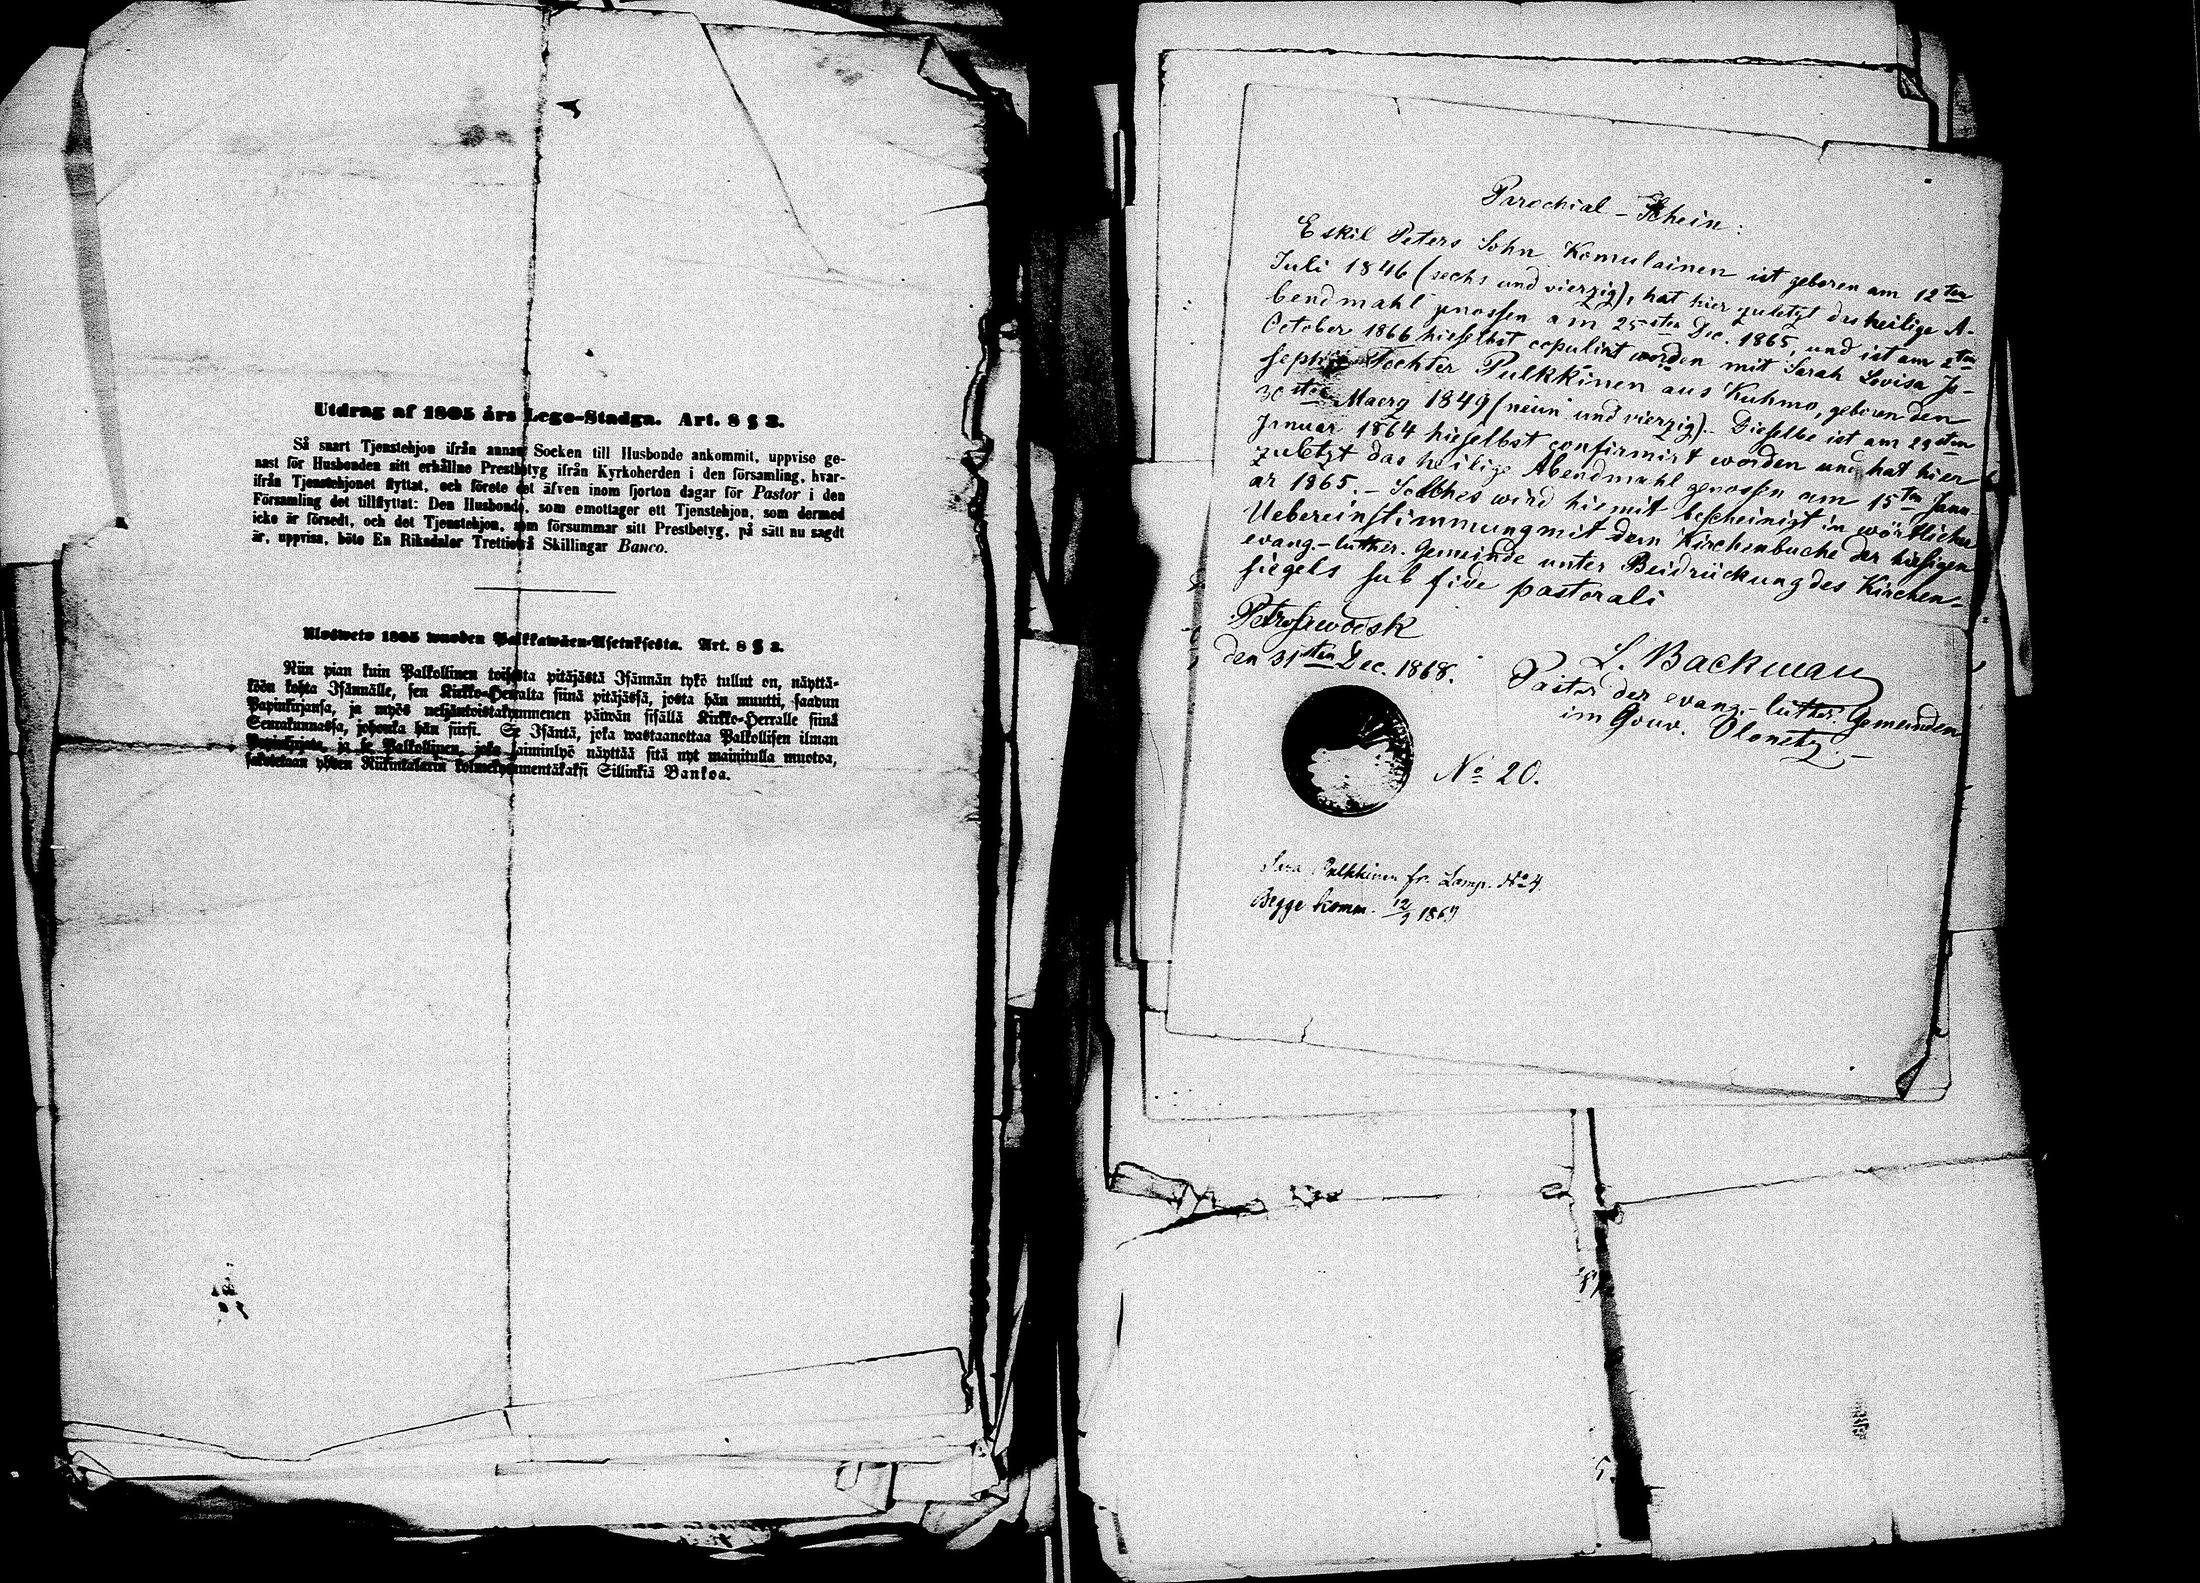 Utdrag af 1805 års Lego-Stadga. Art. 8 § 3.
Så snart Tjenstehjon ifrån annan Socken till Husbonde ankommit, uppvise ge-
nast för Husbonden sitt erhållne Prestbetyg ifrån Kyrkoherden i den församling, hvar-
ifrån Tjenstehjonet flyttat, och förete det äfven inom fjorton dagar för Pastor i den
Församling det tillflyttat: Den Husbonde, som emottager ett Tjenstehjon, som dermed
icke är försedt, och det Tjenstehjon, som försummar sitt Prestbetyg, på sätt nu sagdt
är, uppvisa, böte En Riksdaler Trettiotvå Skillingar Banco.
Ulosweto 1805 wuoden Palkkawäen-Asetuksesta. Art. 8 § 3.
Niin pian kuin Palkollinen toisesta pitäjästä Isännän tykö tullut on, näyttä-
köön kohta Isännälle, sen Kirkko-Herralta siinä pitäjässä, josta hän muutti, saadun
Papinkirjansa, ja myös neljäntoistakymmenen päiwän sisällä Kirkko-Herralle siinä
Seurakunnassa, johonka hän siirsi. Se Isäntä, joka wastaanottaa Palkollisen ilman
Papinkirjata, ja se Palkollinen, joka laiminlyö näyttää sitä nyt mainitulla muotoa,
sakotetaan yhden Riikintalarin kolmekymmentäkaksi Sillinkiä Bankoa.
Parochial-Schein:
Eskil Peters Sohn Komulainen ist geboren am 12ten
Juli 1846 (sechs und vierzig), hat hier zuletzt das heilige A-
bendmahl genossen am 25sten Dec. 1865, und ist am 2ten
October 1866 hieselbst copulirt worden mit Sarah Lovisa Jo-
sephs Tochter Pulkkinen aus Kuhmo, geboren den
30sten Maerz 1849 (neun und vierzig). Dieselbe ist am 29sten
Januar 1864 hieselbst confirmirt worden und hat hier
zuletzt das heilige Abendmahl genossen am 15ten Janu-
ar 1865. - Solches wird hiemit bescheinigt in wörtlicher
Uebereinstimmung mit dem Kirchenbuche der hiesigen
evang.-luther. Gemeinde unter Beidrückung des Kirchen-
siegels sub fide pastorali
Petrosawodsk
den 31sten Dec. 1868.
L. Backman
Pastor der evang.-luther. Gemeinden
im Gouv. Olonetz.-
No 20.
Sara Pulkkinen fr. Lamp. No 4
Begge komm. 12/9 1869